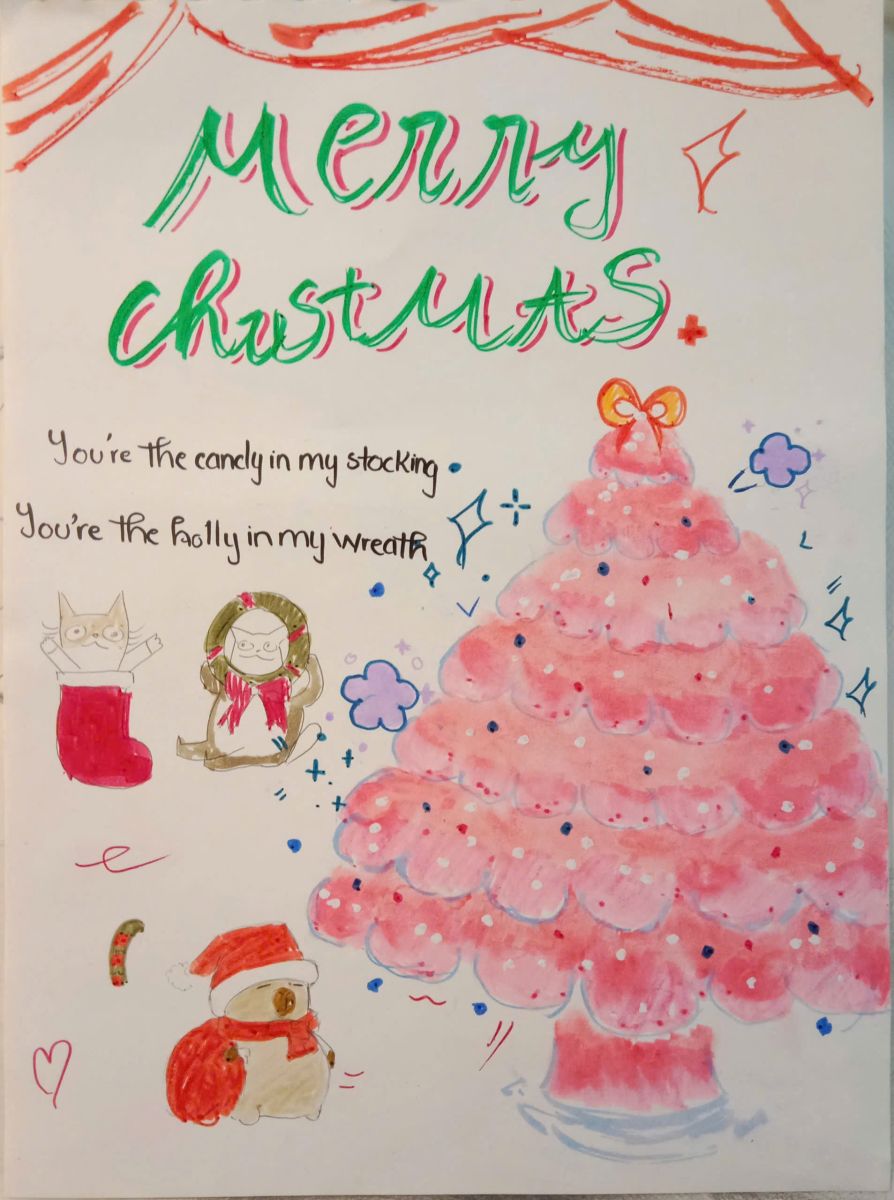 Merry
Christmas
You're the candy in my stocking
You're the holly in my wreath